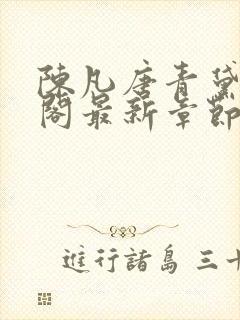 陳凡唐青黛
閣最新章節
進行諸島 三十